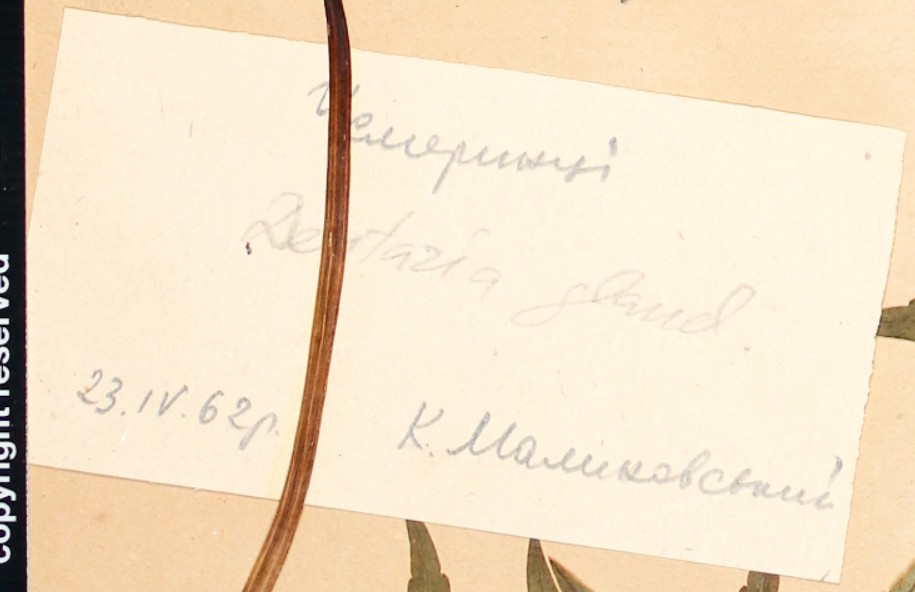 Чемеринці
Dentaria gland.
23.IV.62р.
К. Маликовський
copyright reserved